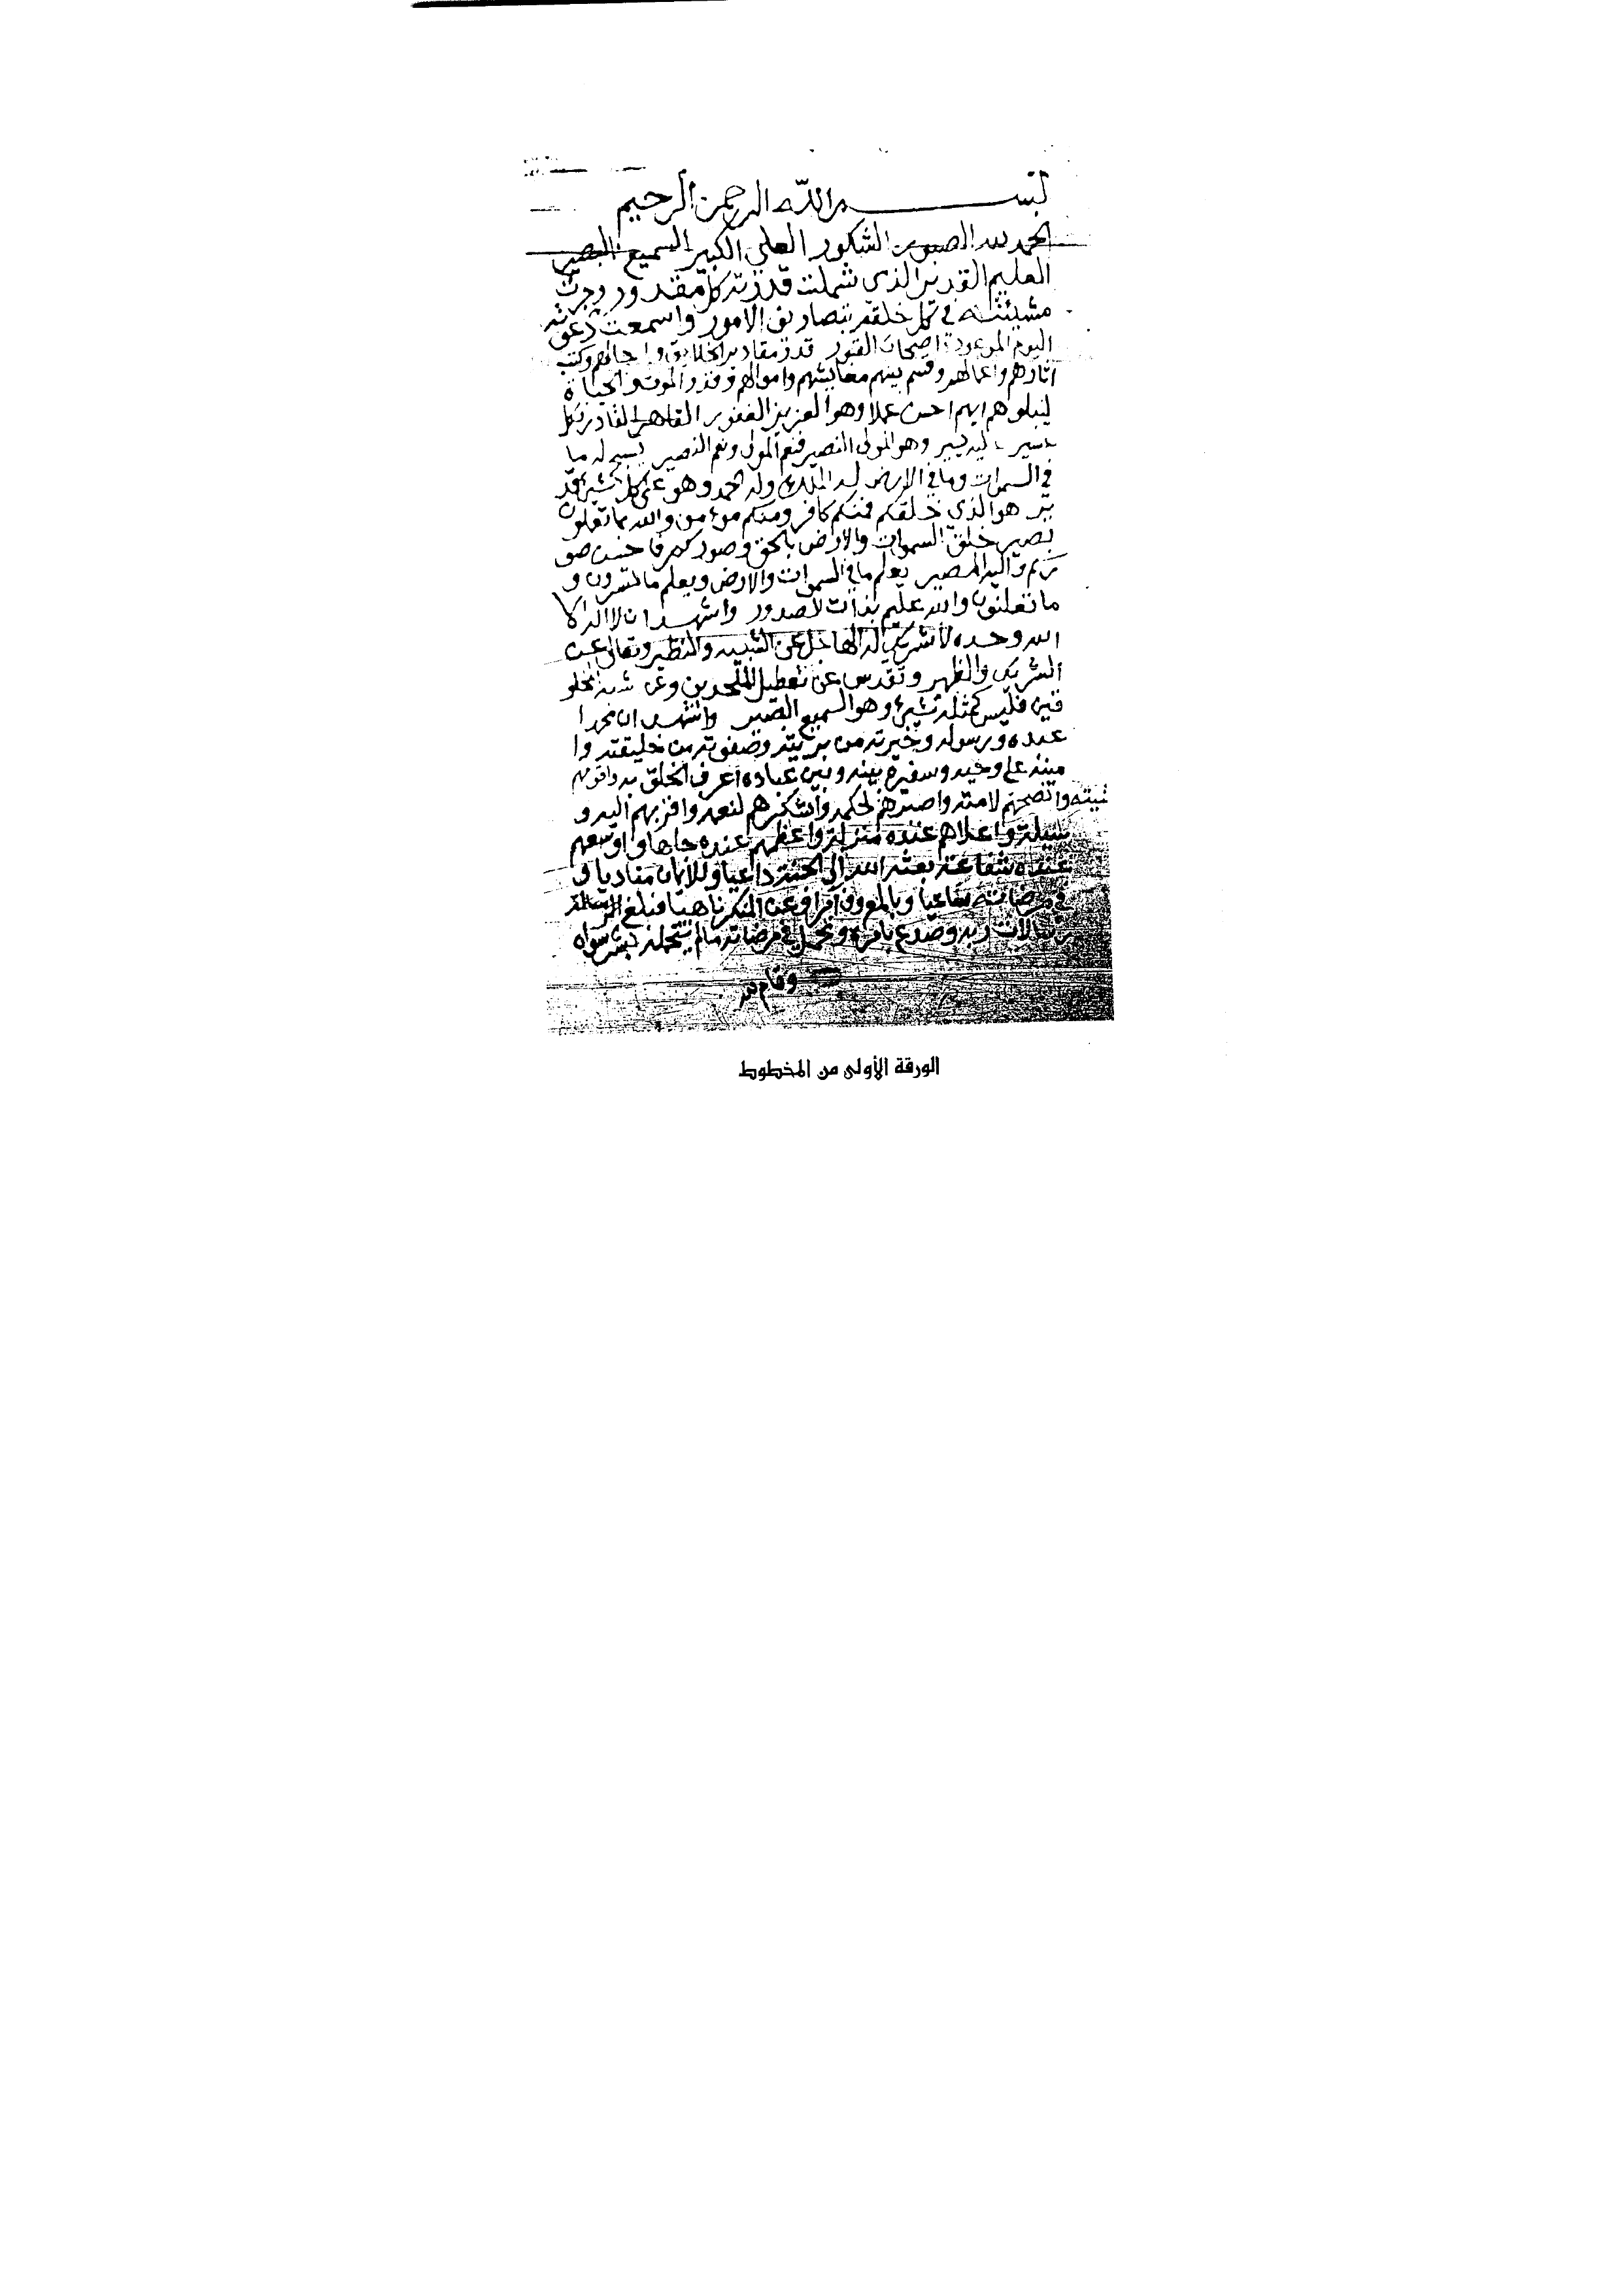 بسم الله الرحمن الرحيم
الحمد لله الصبور الشكور العلي الكبير السميع البصير
العليم القدير الذي شملت قدرته كل مقدور وجرت
مشيئته في كل خلقه بتصاريف الامور واسمعت دعوته
اليوم الموعود اصحاب القبور قدر مقادير الخلايق واجالهم وكتب
اثارهم واعمالهم وقسم بينهم معايشهم واموالهم وقدر الموت والحياة
ليبلوهم ايهم احسن عملا وهو العزيز الغفور القاهر القادر فكل
عسير عليه يسير وهو المولى النصير فنعم المولى ونعم النصير يسبح له ما
في السموات وما في الارض له الملك وله الحمد وهو على كل شيء قد
ير هو الذي خلقكم فمنكم كافر ومنكم مومن والله بما تعملون
بصير خلق السموات والارض بالحق وصوركم فاحسن صو
ركم واليه المصير يعلم ما في السموات والارض ويعلم ما تسرون و
ما تعلنون والله عليم بذات الصدور واشهد ان لا اله الا
الله وحده لا شريك له الها جل عن الشبيه والنظير وتعالى عن
الشريك والظهير وتقدس عن تعطيل الملحدين وعن شبه المخلو
قين فليس كمثله شيء وهو السميع البصير واشهد ان محمدا
عبده ورسوله وخيرته من بريته وصفوته من خليقته وا
مينه على وحيه وسفيره بينه وبين عباده اعرف الخلق به واقومهم
بخشيته وانصحهم لامته واصبرهم لحكمه واشكرهم لنعمه واقربهم اليه و
سيلة واعلاهم عنده منزلة واعظمهم عنده جاها واوسعهم
عنده شفاعة بعثه الله الى الجنة داعيا وللايمان مناديا و
في مرضاته ساعيا وبالمعروف آمرا وعن المنكر ناهيا فبلغ
رسالات ربه وصدع بامره وتحمل في مرضاته ما لم يتحمله بشر سواه
وقام لله
الورقة الأولى من المخطوط